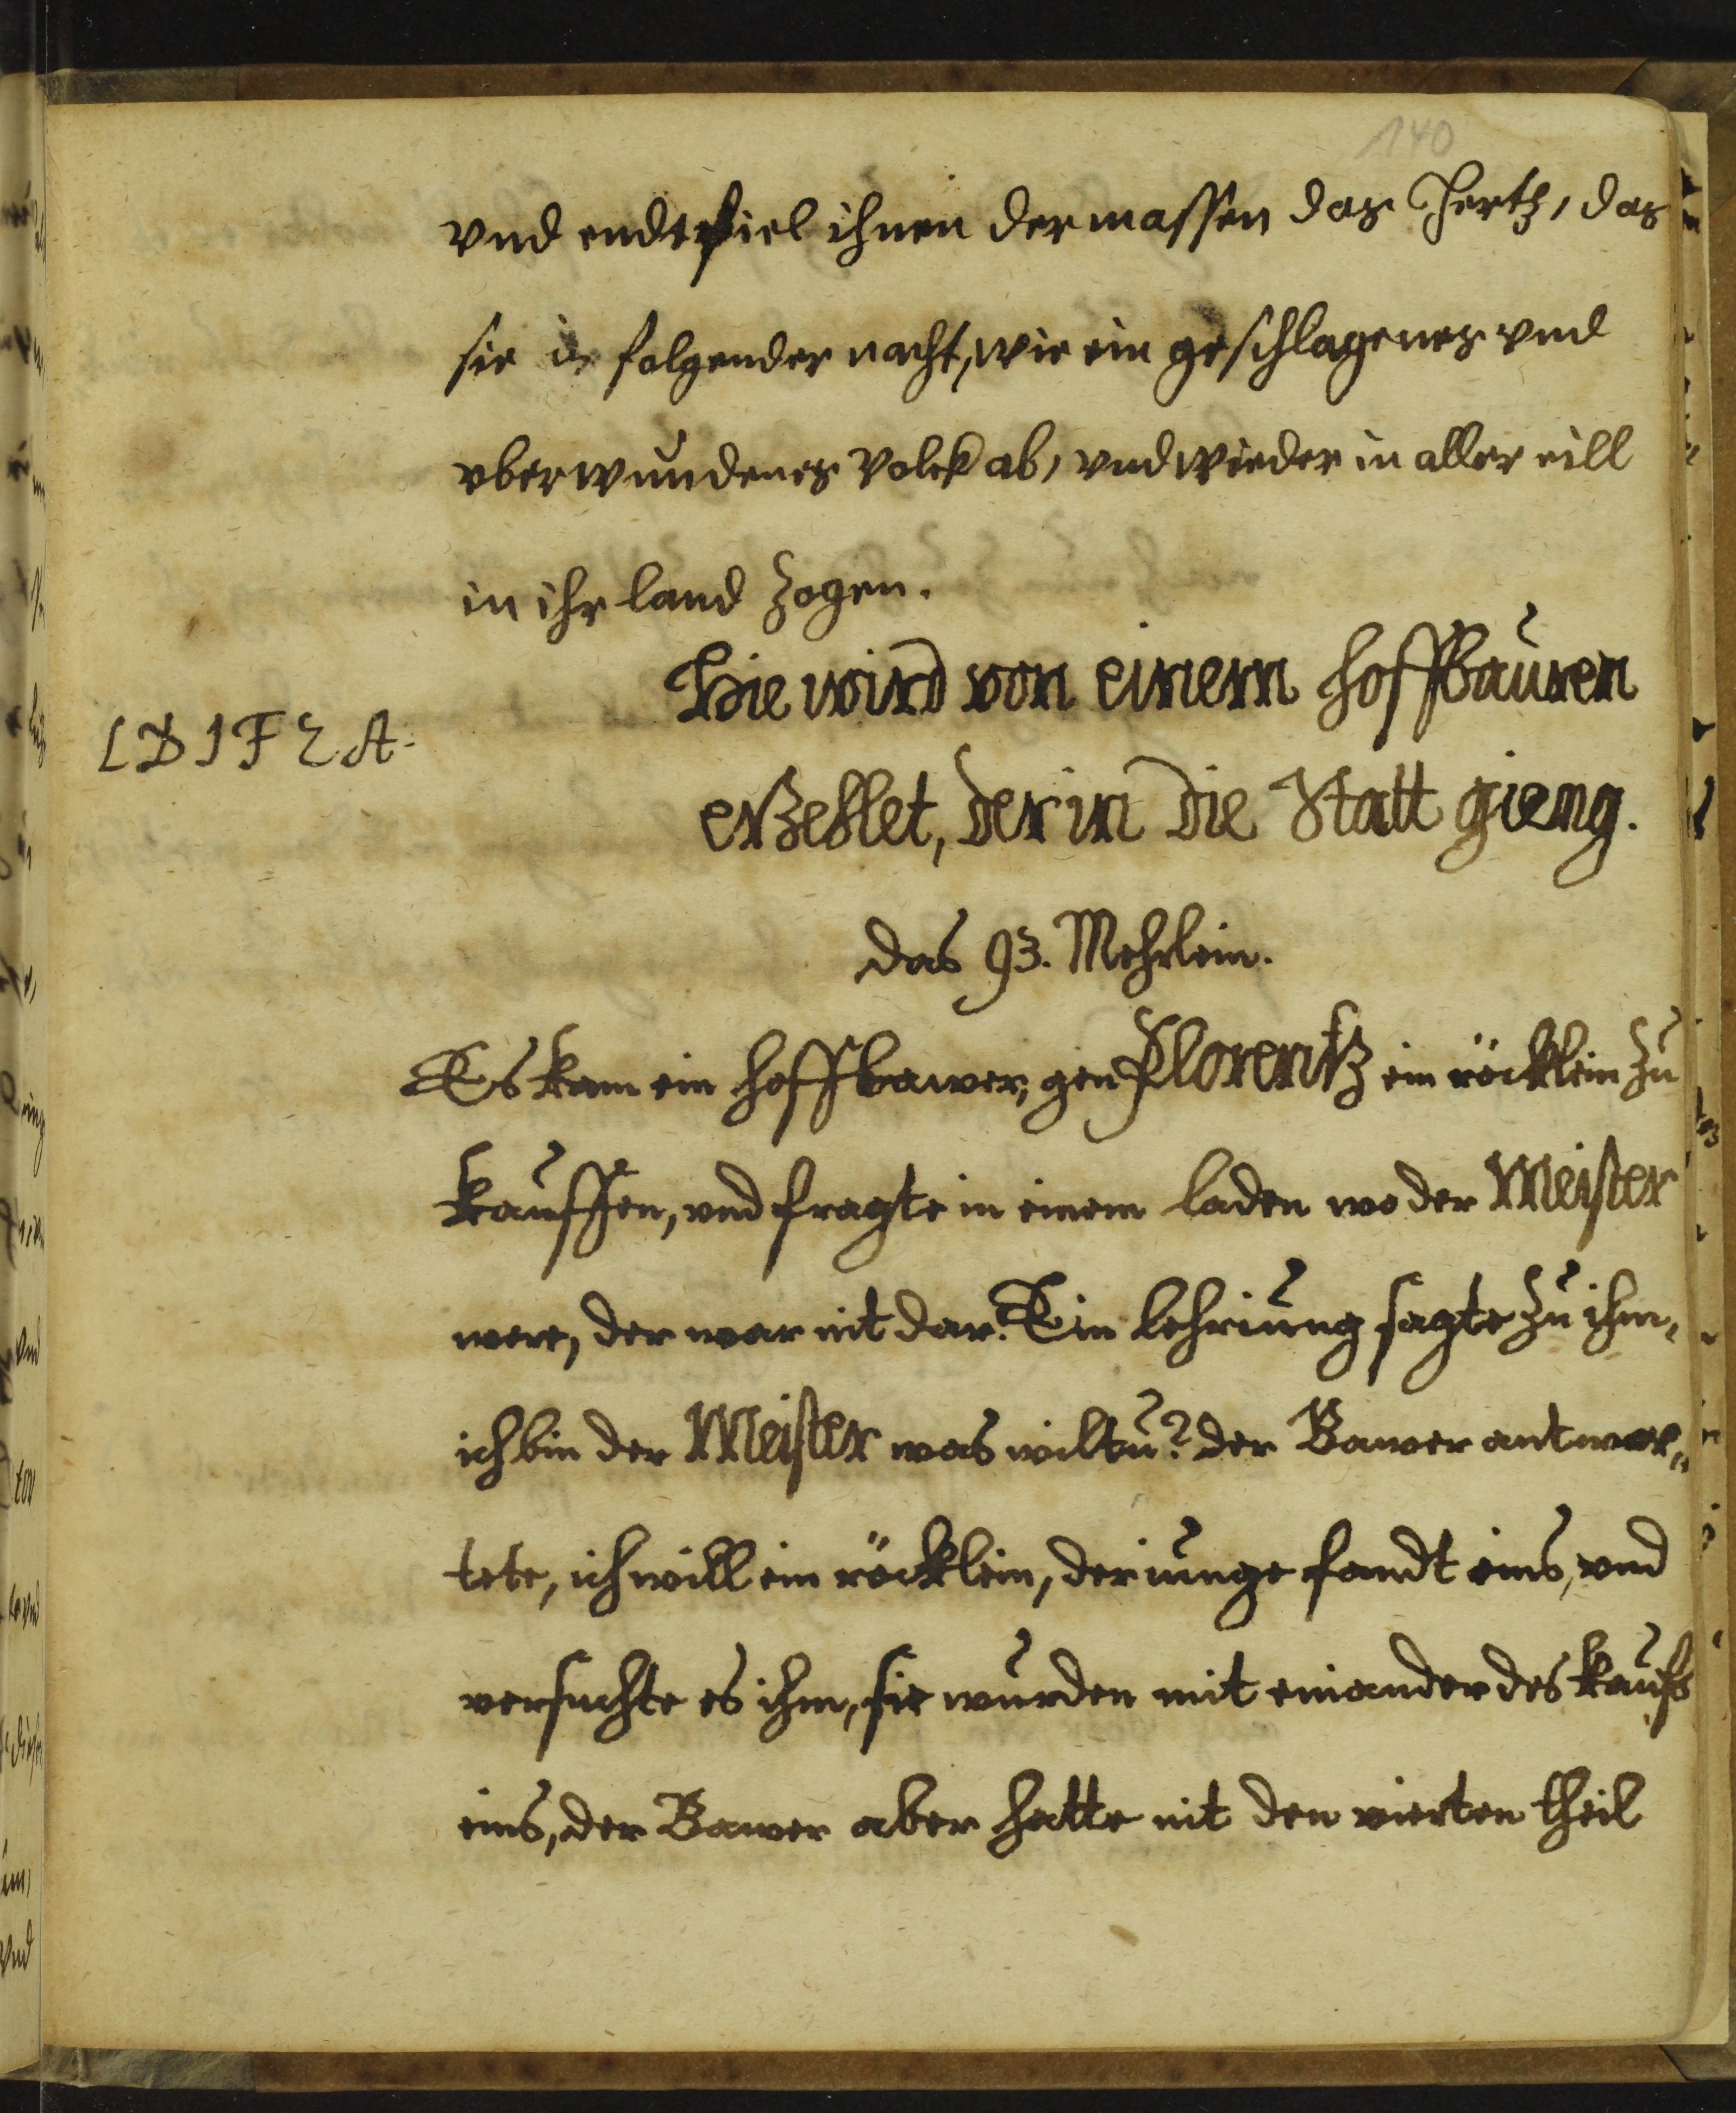 140
vnd endtpfiel ihnen dermassen daz Hertz, daz
sie in folgender nacht, wie ein geschlagenez vnd
vberwundenez Volck ab, vnd wieder in aller eill
in ihr land zogen.
Hie wird von einem hoffbauren
LDIFEA.
erzehlet, der in die Statt gieng.
Das 93. Mehrlein.
Es kam ein hoffbawer, gen Florentz ein röcklein zu
kauffen, vnd fragte in einem laden wo der Meister
were, der war nit dar. Ein lehriung sagte zu ihm,
ich bin der Meister was wiltu? der Bawer antwor„
tete, ich will ein röcklein, der iunge fandt eins, vnd
versuchte es ihm, sie wurden mit einander des kaufs
eins, der Bawer aber hatte nit den vierten theil